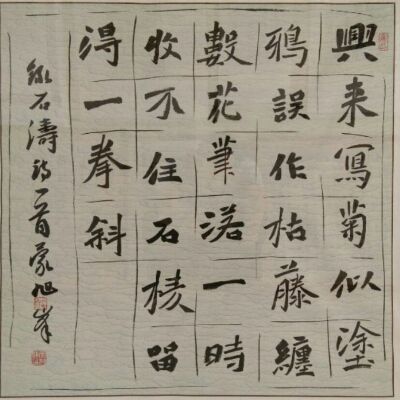 興来寫菊似塗
鴉誤作枯藤纏
數花筆落一時
收不住石棱留
得一拳斜
錄石濤詩一首蒙旭峯